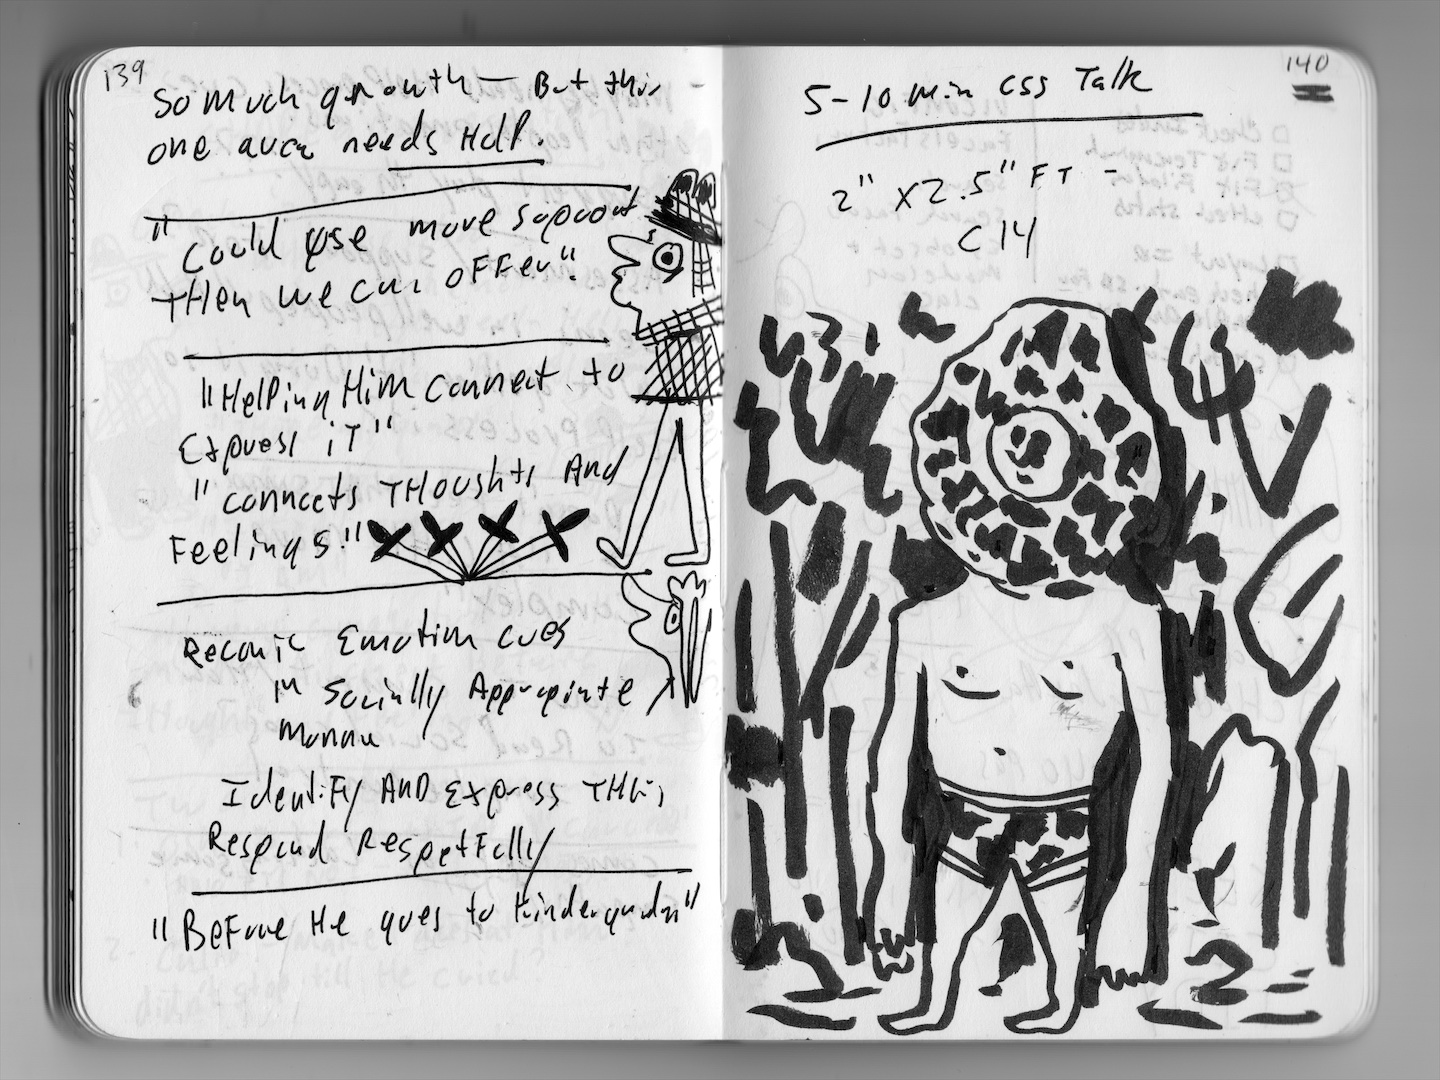 139
So much growth — But this
one area needs Help.
"Could use more support
then we can offer."
"Helping Him connect to
Express iT"
"connects THoughts And
Feelings."
Emotion cues
in Socially
Identify AND Express THis,
Respond
"Before He goes to
140
5-10 min CSS Talk
2" X 2.5" FT -
C14